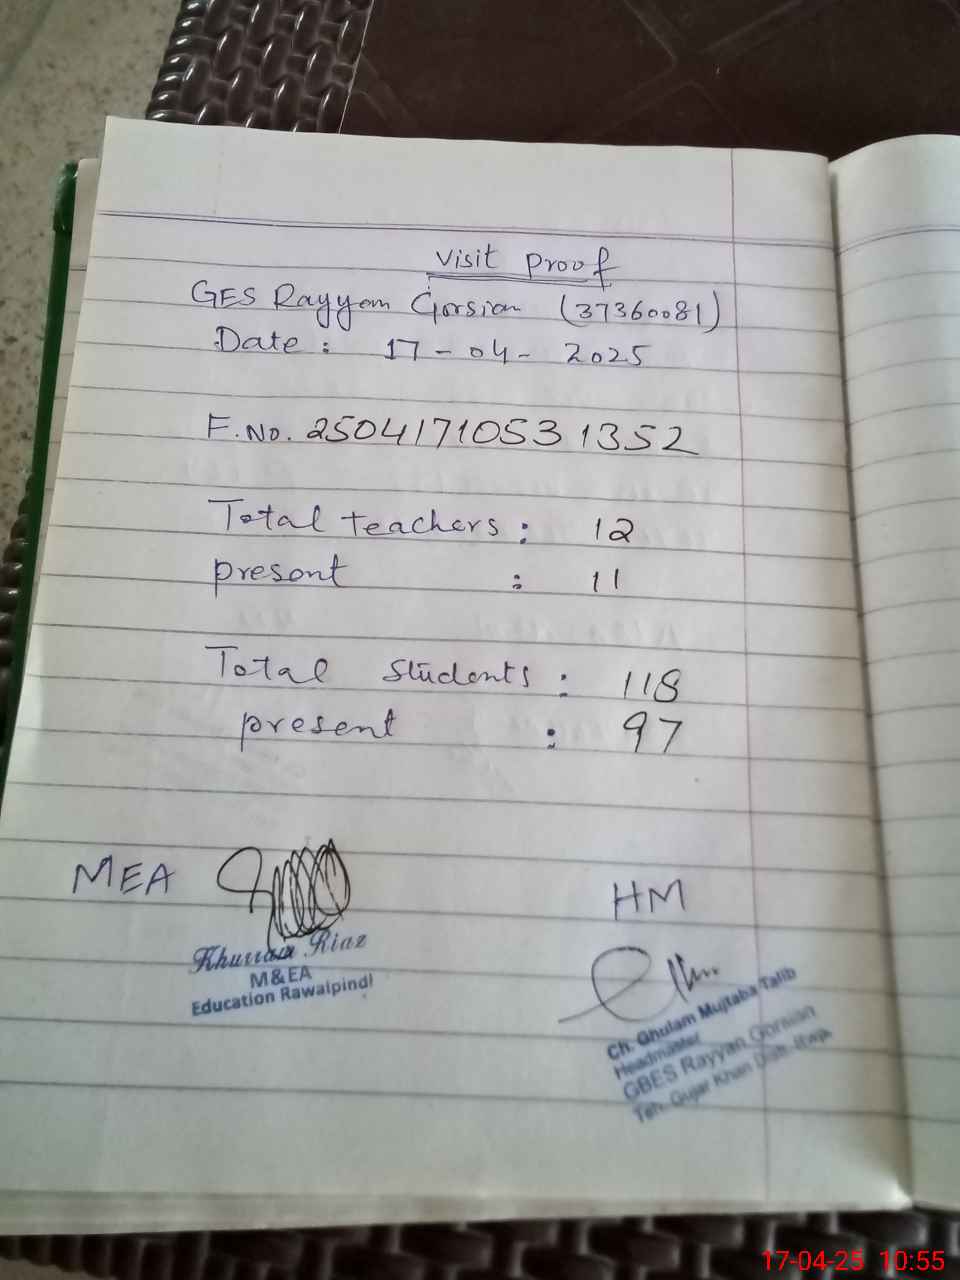 Visit Proof
GES Rayyan Gorsian (37360081)
Date : 17-04-2025
F.No. 25041710531352
Total teachers : 12
present : 11
Total Students : 118
present : 97
MEA
HM
Khurram Riaz
M&EA
Education Rawalpindi
Ch. Ghulam Mujtaba Talib
Headmaster
GBES Rayyan Gorsian
Teh. Gujar Khan Distt. Rwp.
17-04-25 10:55